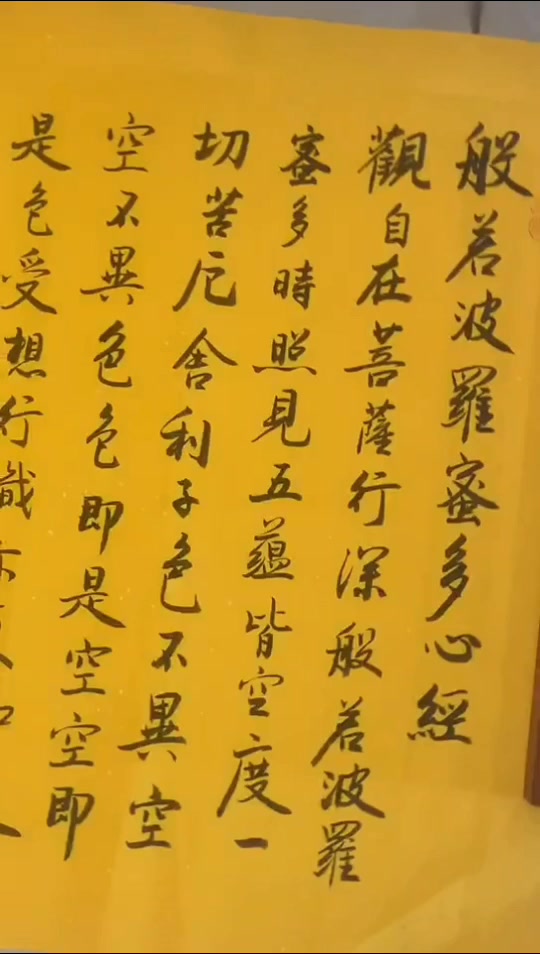 般若波羅蜜多心經
觀自在菩薩行深般若波羅
蜜多時照見五蘊皆空度一
切苦厄舍利子色不異空
空不異色色即是空空即
是色受想行識亦